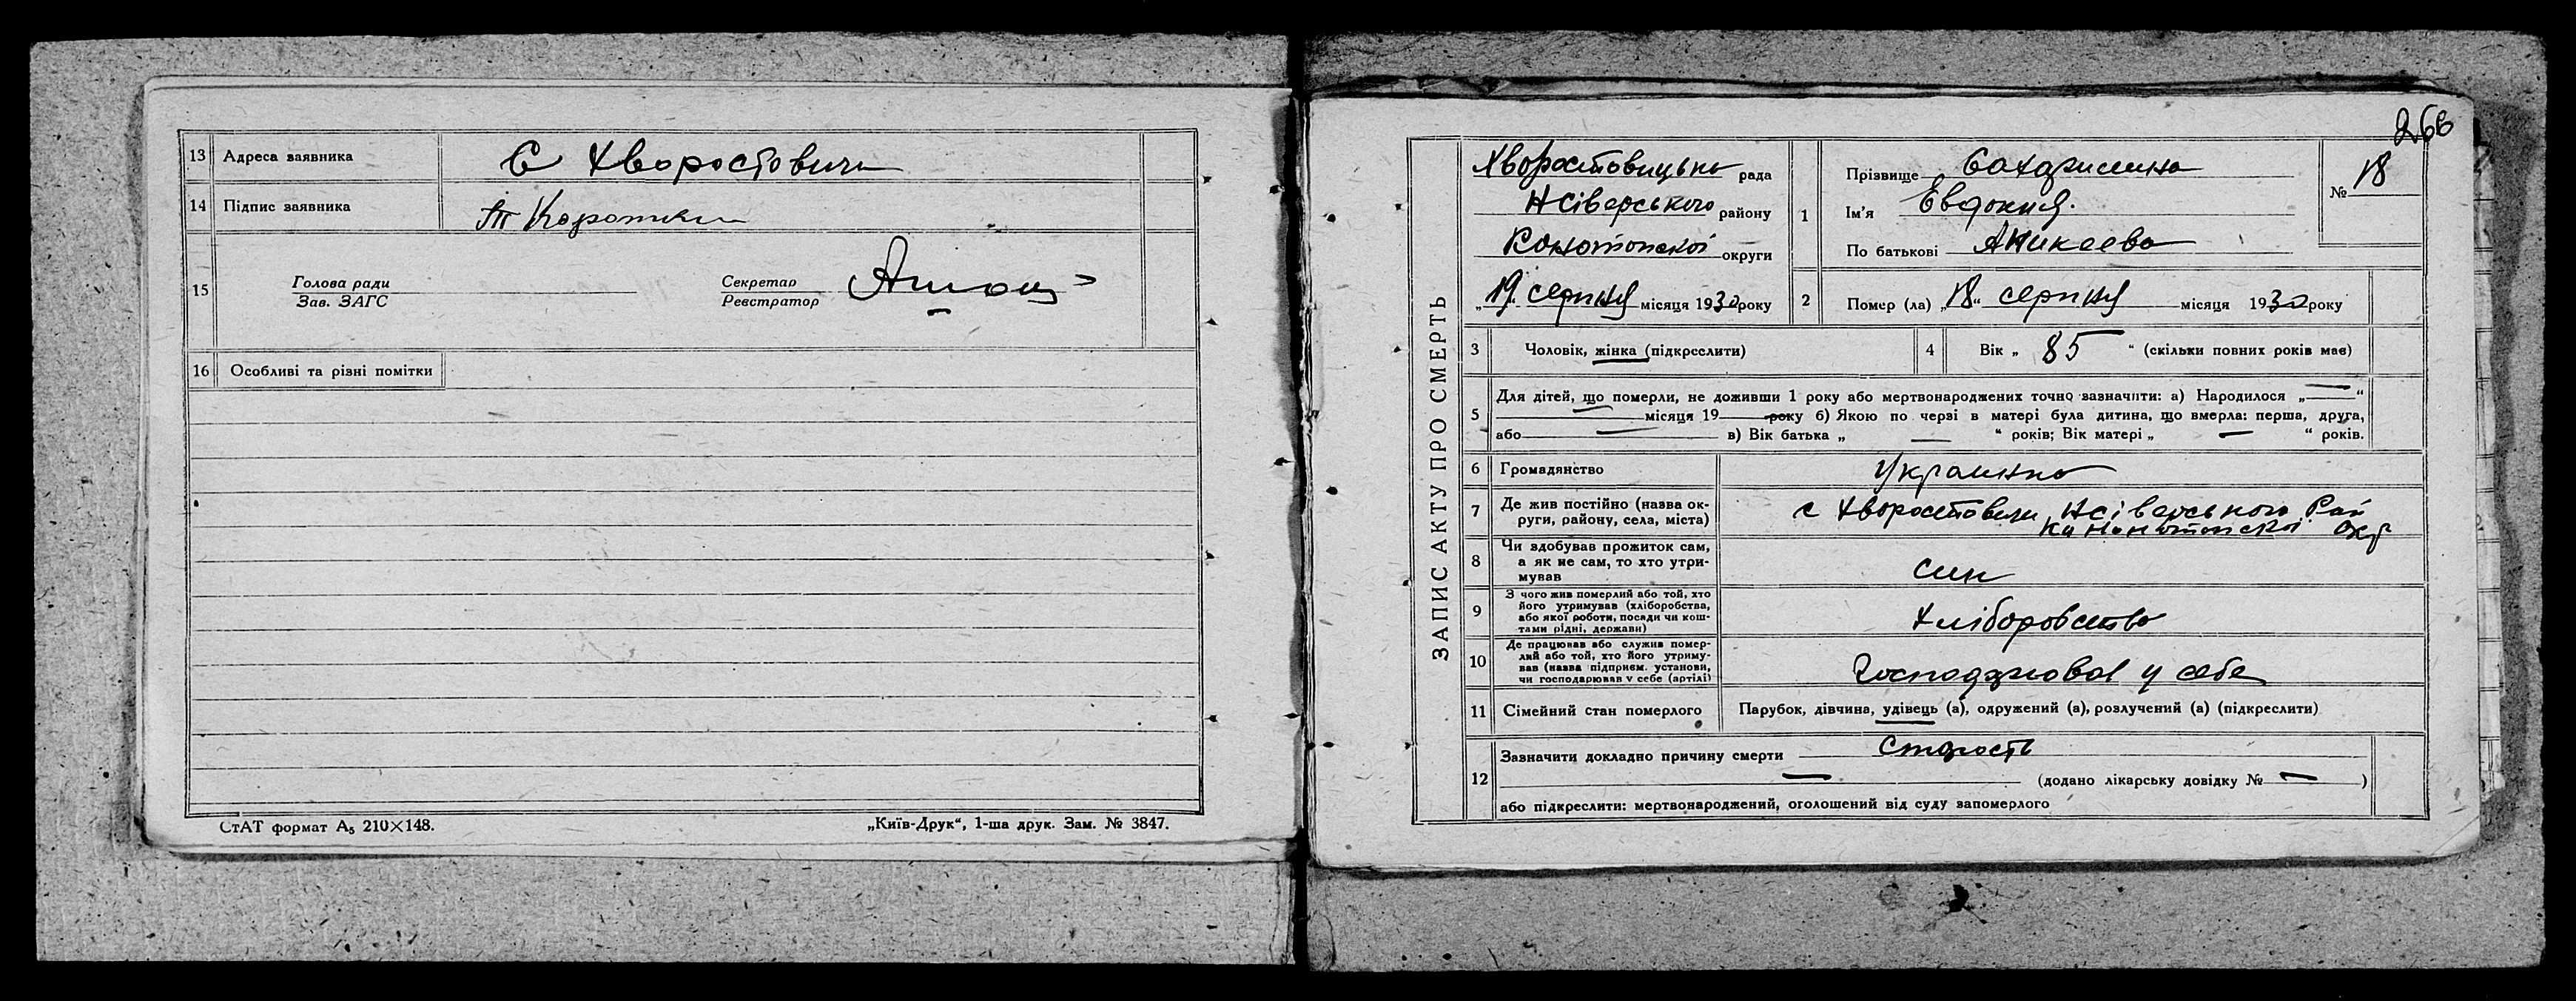 13 Адреса заявника С Хворостовичи
14 Підпис заявника
15 Голова ради
Зав. ЗАГС
Секретар
Реєстратор
16 Особливі та різні помітки
СтАТ формат А₅ 210×148.
„Київ-Друк“, 1-ша друк. Зам. № 3847.
ЗАПИС АКТУ ПРО СМЕРТЬ
Хворостовицька рада
Нсіверського району
Конотопскої округи
„19“ серпня місяця 1930 року
1 Прізвище
Ім'я Евдокия.
По батькові Аникеева
№ 18
2 Помер (ла) „18“ серпня місяця 1930 року
3 Чоловік, жінка (підкреслити)
4 Вік „ 85 “ (скільки повних років має)
5 Для дітей, що померли, не доживши 1 року або мертвонароджених точно зазначити: а) Народилося „—“
— місяця 19— року б) Якою по черзі в матері була дитина, що вмерла: перша, друга,
або — в) Вік батька „ — “ років; Вік матері „ — “ років.
6 Громадянство Украинка
7 Де жив постійно (назва ок-
руги, району, села, міста)
с Хворостовичи Нсіверського Рай
Окр
8 Чи здобував прожиток сам,
а як не сам, то хто утри-
мував
син
9 З чого жив померлий або той, хто
його утримував (хліборобства,
або якої роботи, посади чи кош-
тами рідні, держави)
Хліборобство
10 Де працював або служив помер-
лий або той, хто його утриму-
вав (назва підприєм. установи,
чи господарював у себе (артілі)
у себе
11 Сімейний стан померлого Парубок, дівчина, удівець (а), одружений (а), розлучений (а) (підкреслити)
12 Зазначити докладно причину смерти Старость
— (додано лікарську довідку № — )
або підкреслити: мертвонароджений, оголошений від суду запомерлого